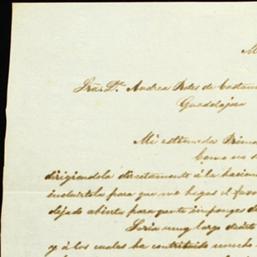 M
Sra. Da. Andrea Robes de Castam
Guadalajara
Mi estimada Prima
Como no
dirigiendola directamente á la hacien
incluirtela para que me hagas el favor
dejado abierta para que te impongas d
Seria muy largo decirte
y á los cuales ha contribuido mucho